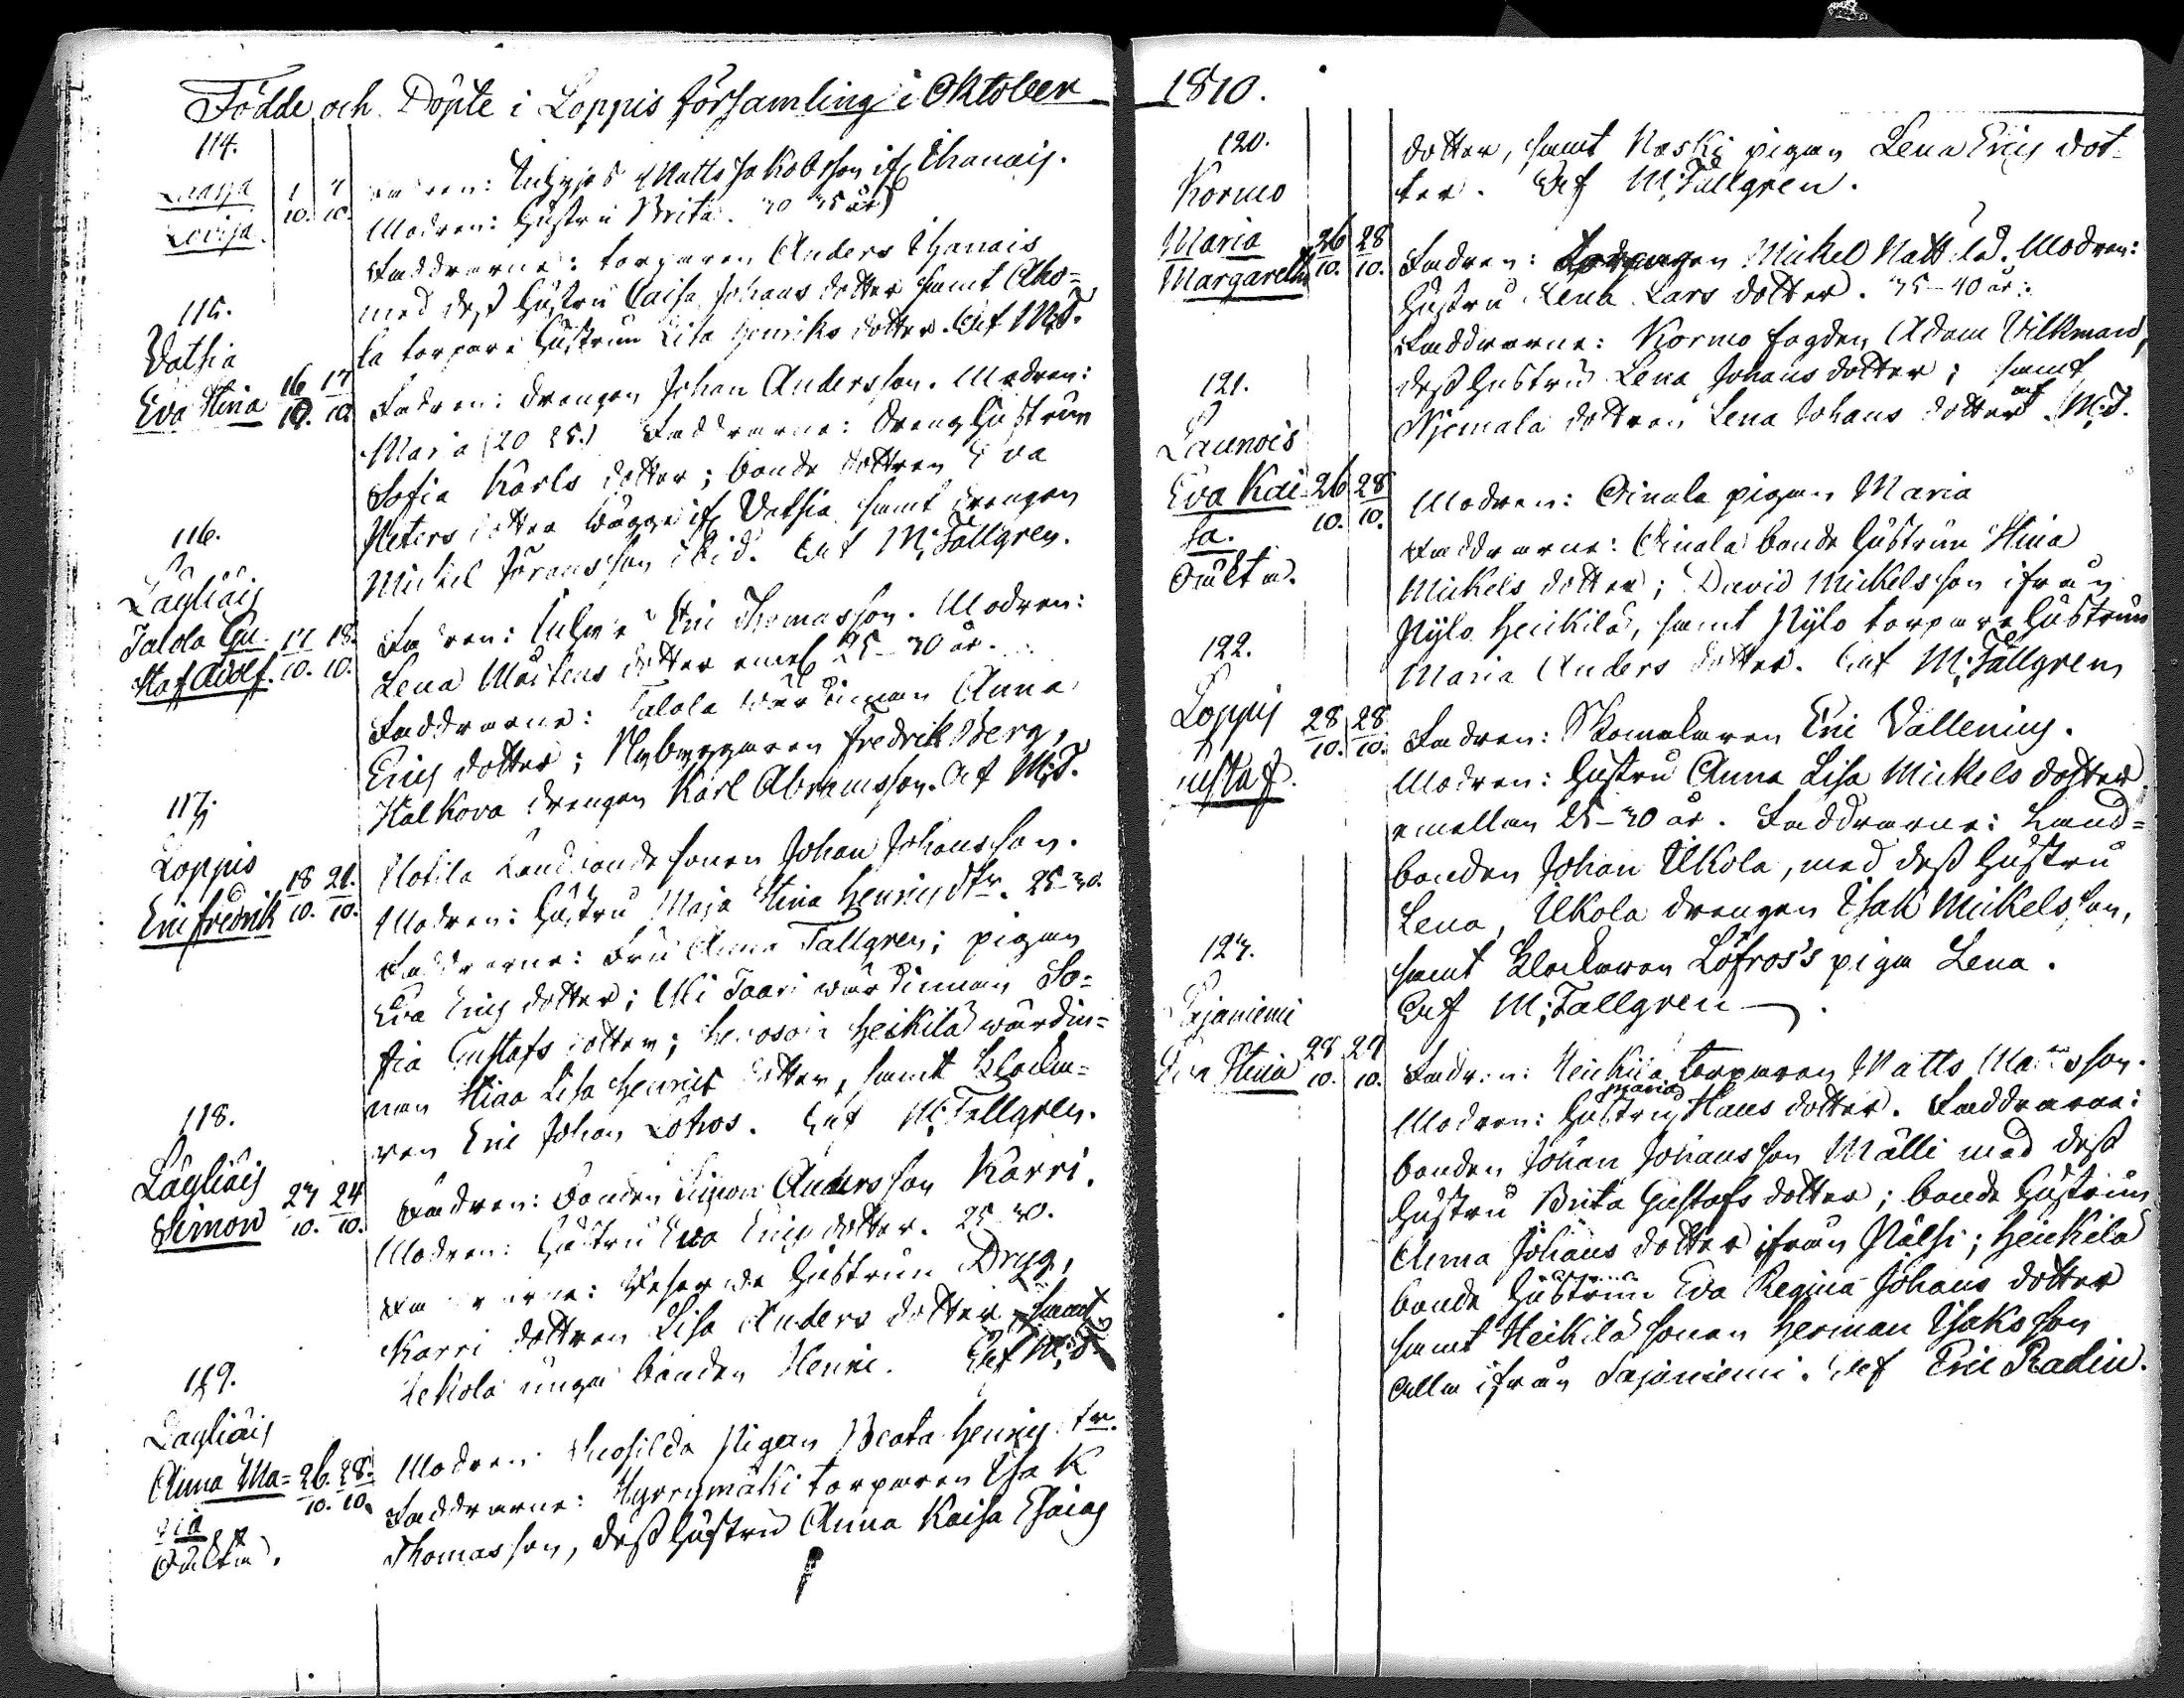 Födde och Döpte i Loppis församling i Oktober
114.
Lovisa
10. 10.
Fadren: Matts Jakobsson
Modren: Hustru Brita. 30 35 år)
Faddrarne: torparen Anders
med dess Hustru Caisa Johans dotter samt Aho=
la torpare Hustrun Lisa Henriks dotter. Af M:T.
115.
Vatsia
Eva Stina 16 17
10. 10.
Fadren: drengen Johan Andersson. Modren:
Maria (20 25.) Faddrarne: dreng Hustrun
Sofia Karls dotter; bonde dottren Eva
Peters dotter Wägge if Vatsia samt drengen
Mickel Göransson ibid. Af M:Tallgren.
116.
Läyliäis
Talola Gu= 17 18.
staf Adolf. 10. 10.
Fadren: Eric Thomasson. Modren:
Lena Mårtens dotter emel 25–30 år.
Faddrarne: Talola wärdinnan Anna
Erics dotter; Nybyggaren Fredrik Berg,
Kalkova drengen Karl Abramsson. Af M:T.
117.
Loppis
Eric Fredrik 18 21.
10. 10.
Landbonde sonen Johan Johansson.
Modren: Hustru Maja Stina Henrics dtr. 25–30.
Faddrarne: Fru Anna Tallgren; pigan
Eva Erics dotter; Taari wärdinnan So=
fia Gustafs dotter; Heikilä wärdin=
nan Stina Lisa Henrics dotter, samt Klocka=
ren Eric Johan Löfros. Af M:Tallgren.
118.
Läyliäis
Simon 23 24
10. 10.
Fadren: Bonden Simon Andersson Karri.
Modren: Hustru Eva Erics dotter. 25 30.
Faddrarne: Hustrun
Karri dottren Lisa Anders dotter samt
unga bonden Henric. Af M:T.
119.
Läyliäis
Anna Ma= 26. 28.
ria 10. 10.
Oäkta.
Modren: Pigan Beata Henrics dtr.
Faddrarne: Hyrrymäki torparen Isak
Thomasson, dess Hustru Anna Kaisa Esaias
1810.
dotter, samt Koski pigan Lena Erics dot=
ter. Af M:Tallgren.
120.
Kormo
Maria 26 28
Margaretha 10. 10.
Fadren: Mickel Mattila. Modren:
Hustru Lena Lars dotter. 35–40 år:
Faddrarne: Kormo fogden Adam Vilkman,
dess Hustru Lena Johans dotter; samt
dottren Lena Johans dotter. af M:T.
121.
Launois
Eva Kai= 26 28
sa. 10. 10.
Oäkta.
Modren: pigan Maria
Faddrarne: bonde Hustrun Stina
Mickels dotter; David Mickelsson ifrån
Pylo Heikilä, samt Pylo torpare Hustrun
Maria Anders dotter. Af M:Tallgren
122.
Loppis 28 28
Gustaf. 10. 10.
Fadren: Skomakaren Eric Vallenius.
Modren: Hustru Anna Lisa Mickels dotter
emellan 25–30 år. Faddrarne: Land=
bonden Johan Ukola, med dess Hustru
Lena, Ukola drengen Isak Mickelsson,
samt Klockaren Löfros's piga Lena.
Af M:Tallgren.
123.
Sajaniemi
Eva Stina 28 29
10. 10.
Fadren: Heikilä torparen Matts Mattsson.
Modren: Hustru Maria Hans dotter. Faddrarne:
bonden Johan Johansson Mälli med dess
Hustru Brita Gustafs dotter; bonde Hustrun
Anna Johans dotter ifrån Pälsi; Heikilä
bonde Hustrun Eva Regina Johans dotter
samt Heikilä sonen Herman Isaksson
alla ifrån Sajaniemi. Af Eric Radin.